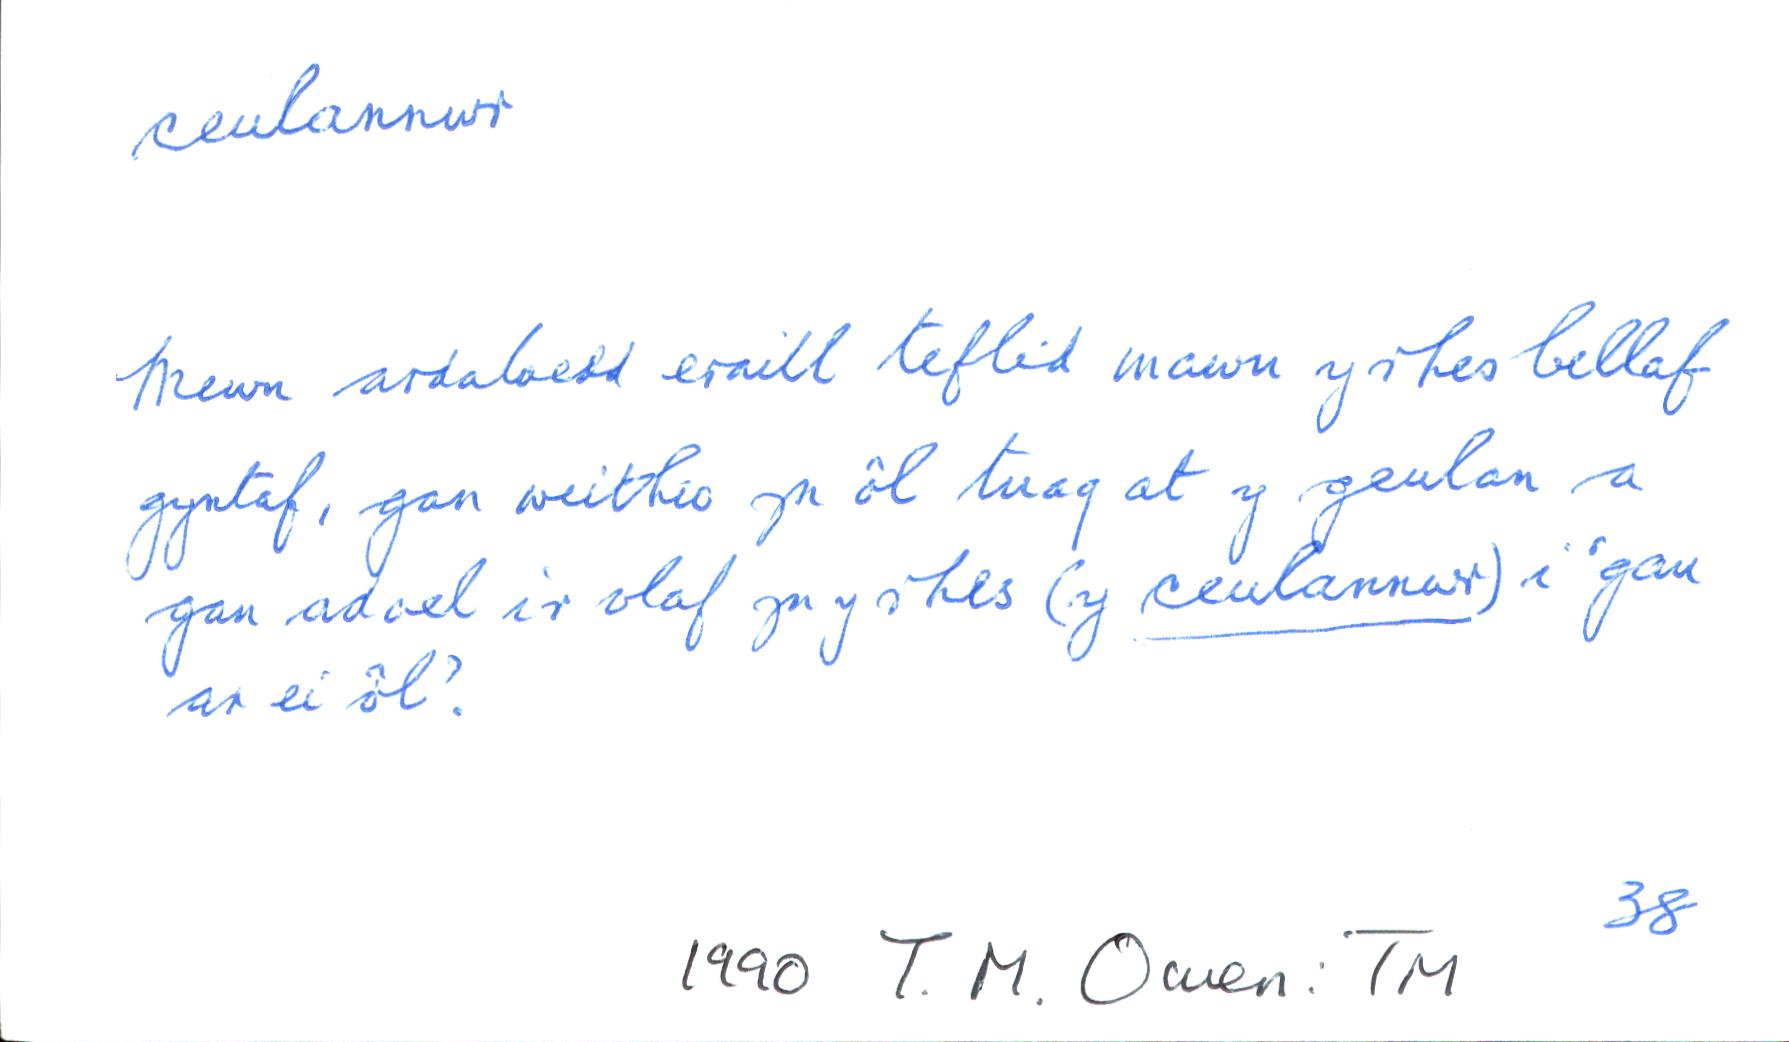 ceulannwr
Mewn ardaloedd eraill teflid mawn y rhes bellaf
gyntaf, gan weithio yn ôl tuag at y geulan a
gan adael i'r olaf yn y rhes (y ceulannwr) i 'gau
ar ei ôl'.
38
1990 T. M. Owen: TM